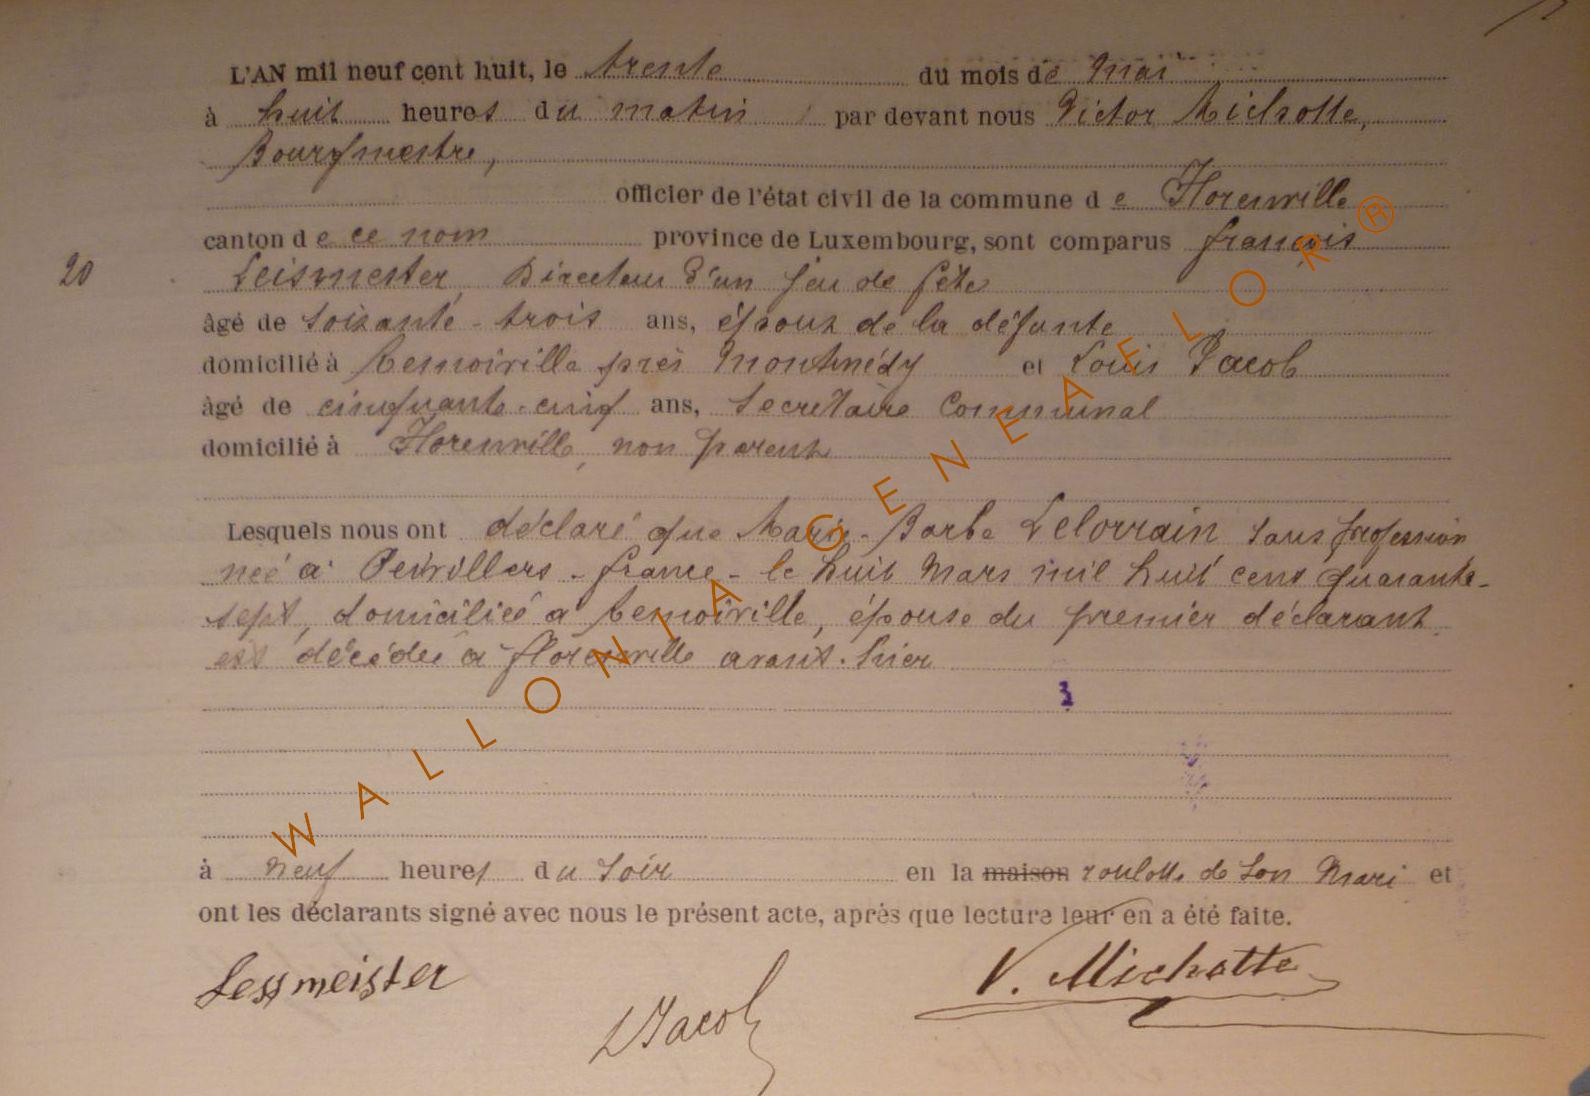 L'AN mil neuf cent huit, le trente du mois de Mai
à huit heures du matin par devant nous Victor Michotte,
Bourgmestre,
officier de l'état civil de la commune de Florenville
canton de ce nom province de Luxembourg, sont comparus françois
20 Leismester, Directeur d'un jeu de fête
âgé de soixante-trois ans, époux de la défunte
domicilié à Remoiville près Montmédy et Louis Jacob
âgé de cinquante-cinq ans, Secrétaire Communal
domicilié à Florenville, non parents
Lesquels nous ont déclaré que Marie-Barbe Lelorrain sans profession
née à Peuvillers - france - le huit Mars mil huit cent quarante-
sept, domiciliée à Remoiville, épouse du premier déclarant
est décédée à florenville avant-hier
3
à neuf heures du soir en la maison roulotte de son Mari et
ont les déclarants signé avec nous le présent acte, après que lecture leur en a été faite.
Lessmeister
LJacob
V. Michotte
WALLONIA GENEAELOR®